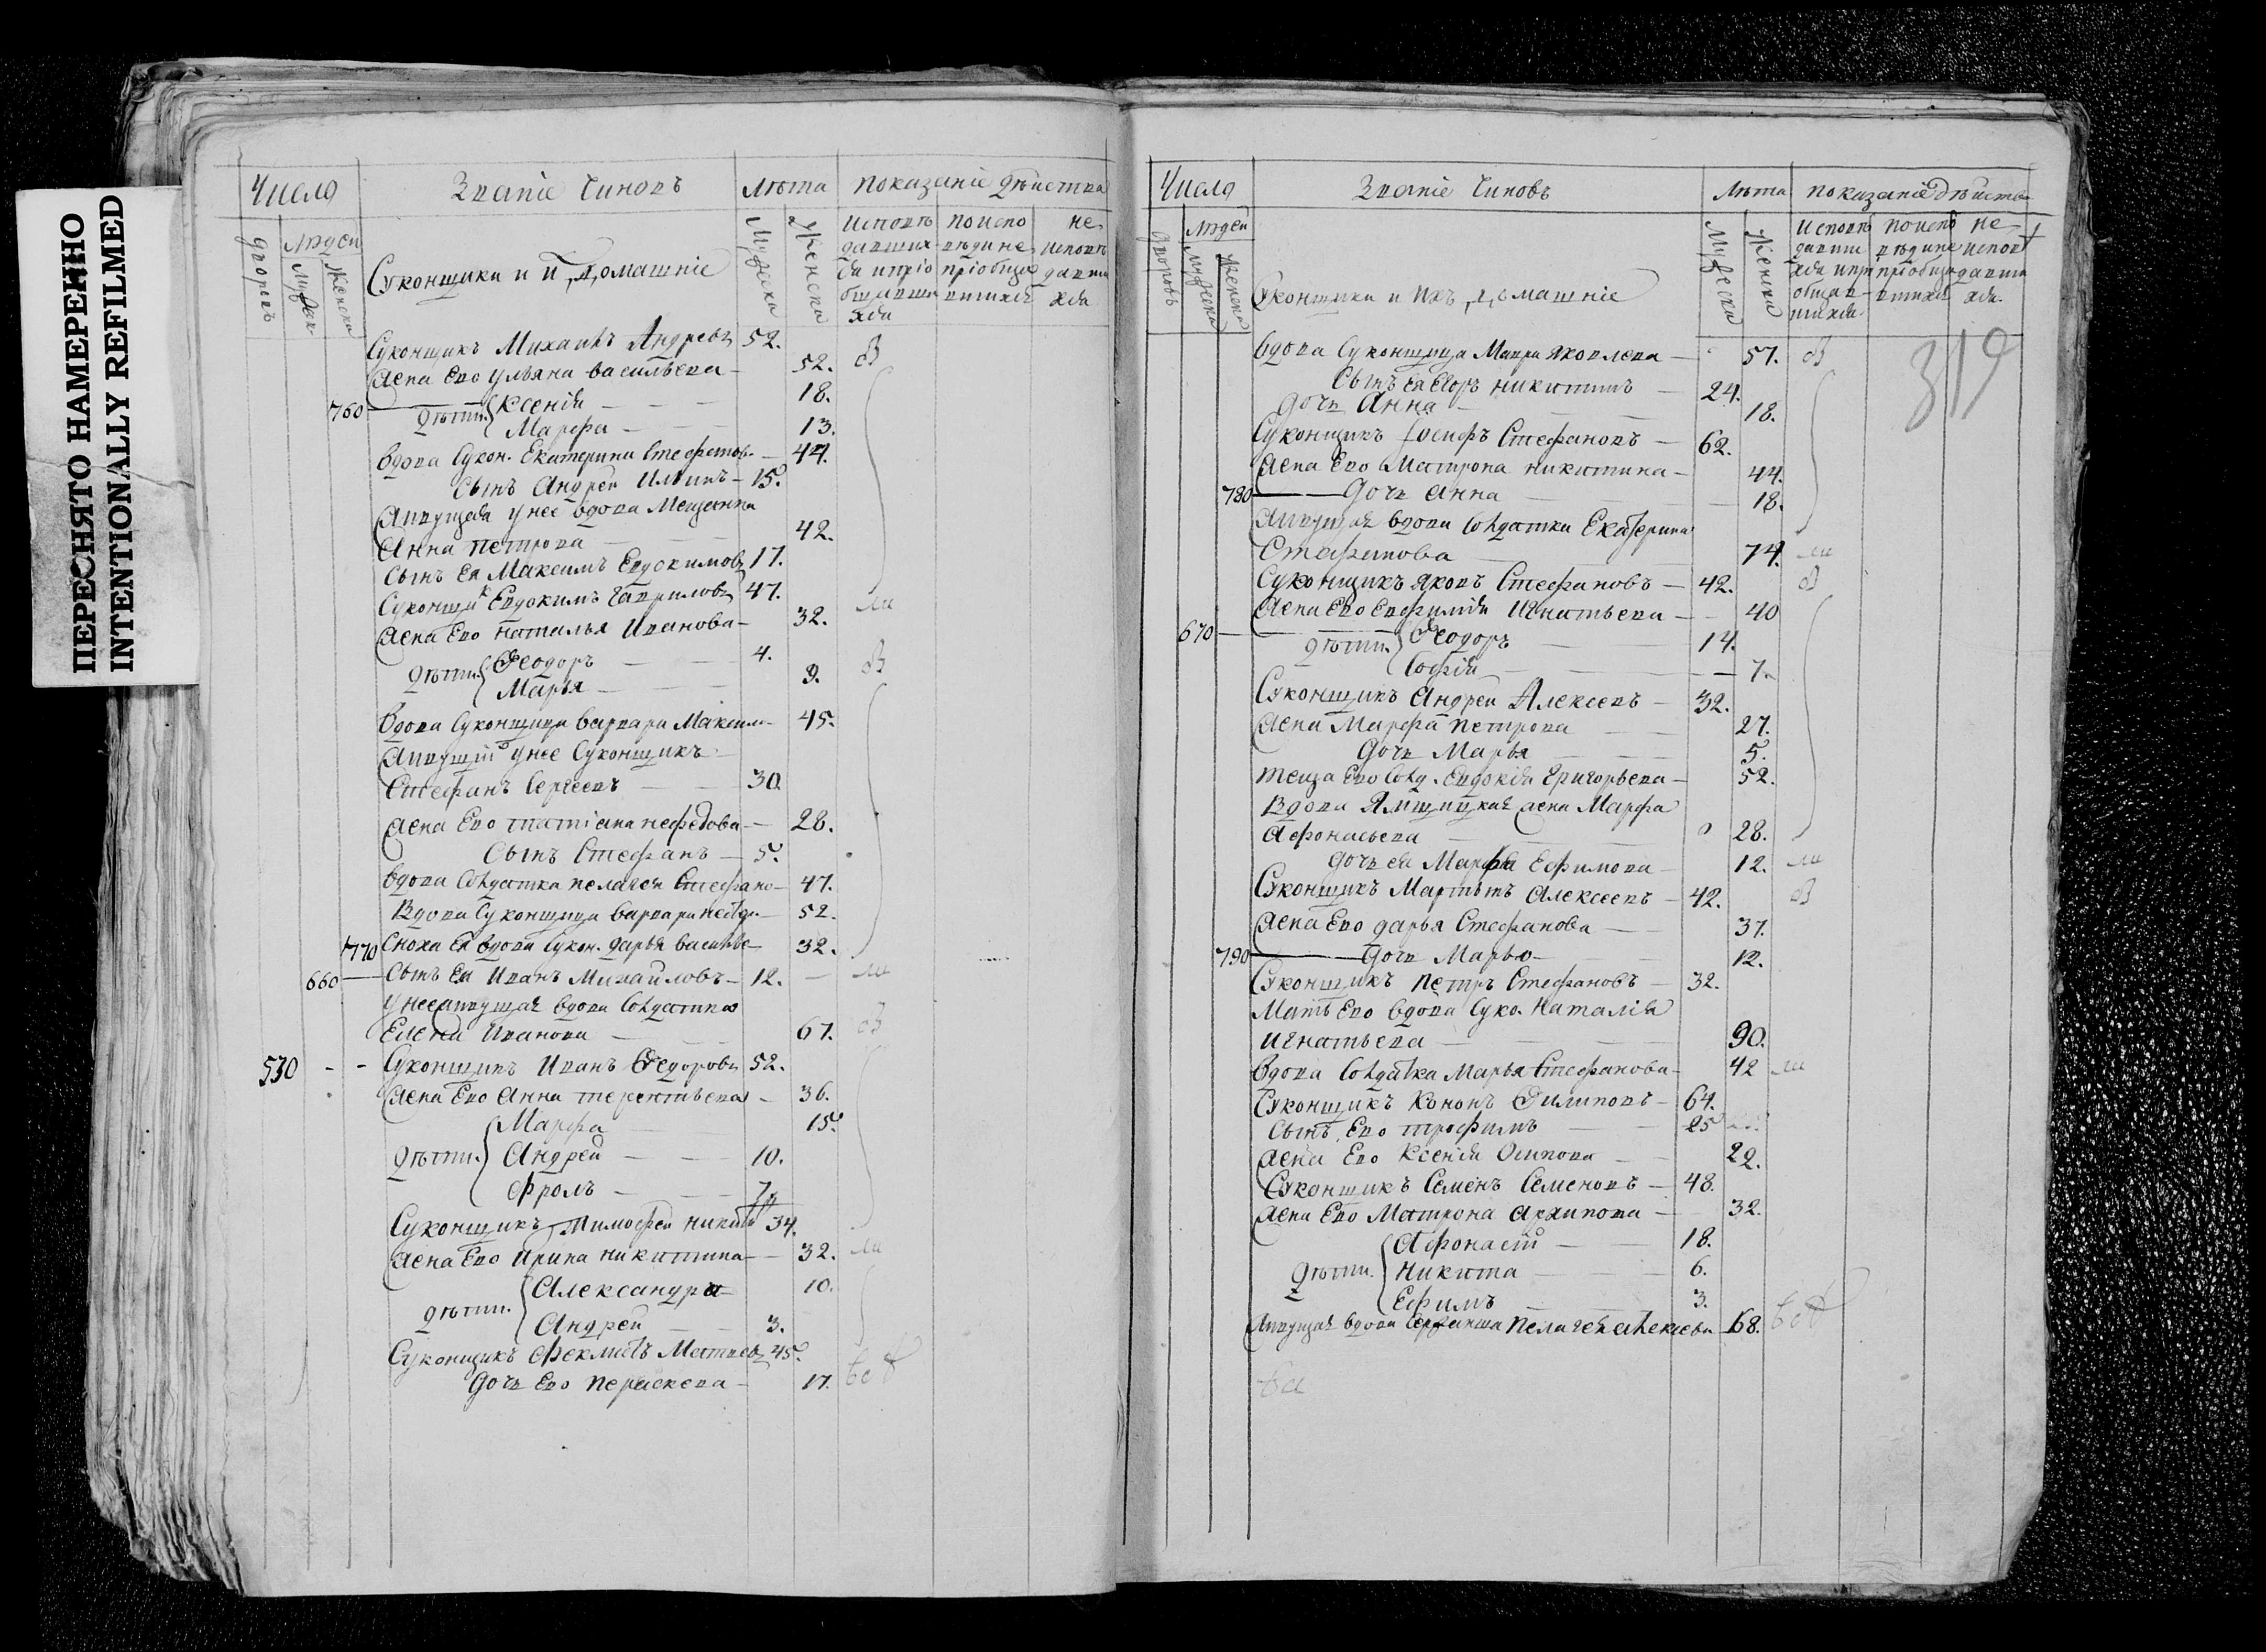 ПЕРЕСНЯТО НАМЕРЕННО
INTENTIONALLY REFILMED
Числа
Званіе Чиновъ
Лѣта
показаніе дѣиства
дворовъ
Людеи
Мужеск
Женска
Суконщики и их домашніе
Мужеска
Женска
Исповѣ
давших
ся и пріо
бщивши
хся
по испо
вѣди не
пріобще
вшихся
не
исповѣ
давши
хся
Суконщикъ Михаилъ Андреевъ 52.
Жена Ево Ульяна васильева — 52.
760 дѣти Ксенія — 18.
Марфа — 13.
вдова Сукон. Екатерина Стефанов. — 44.
Сынъ Андреи Ильинъ — 15.
Живущая у нее вдова Мещенка
Анна петрова — 42.
Сынъ Ея Максимъ Евдокимовъ 17.
Суконщикъ Евдокимъ Гавриловъ 47.
Жена Ево наталья Иванова — 32.
дѣти Феодоръ — 4.
Марья — 9.
вдова Суконщица варвара Максим — 45.
Живущіи у нее Суконщикъ
Стефанъ Сергеевъ — 30.
Жена Ево татіана нефедова — 28.
Сынъ Стефанъ — 5.
вдова Солдатка пелагея Стефано — 47.
Вдова Суконщица варвара — 52.
770 Сноха Ея вдова Сукон. дарья василье — 32.
660 — Сынъ Ея Иванъ Михаиловъ — 12.
У нее живущая вдова Солдатка
Елена Иванова — 67.
530 - - Суконщикъ Иванъ Федоровъ 52.
Жена Ево Анна терентьева — 36.
Марфа — 15.
дѣти. Андреи — 10.
Фролъ — 7
Суконщикъ Тимофеи никит 34.
Жена Ево Ирина никитина — 32.
Александра 10.
дѣти. Андреи — 3.
Суконщикъ Феклистъ Матвеев 45.
дочь Ево параскева — 17.
Числа
Званіе Чиновъ
Лѣта
показаніе дѣиства
дворовъ
Людеи
Мужеска
Женска
Суконщики и Ихъ домашніе
Мужеска
Женска
Исповѣ
давши
хся и при
общав
шихся
по исповѣ
вѣди не
пріобща
вшихся
не
испов
давши
хся.
319
вдова Суконщица Мавра Яковлева — 57.
Сынъ ея Егоръ никитинъ — 24.
дочь Анна — 18.
Суконщикъ Іосифъ Стефановъ — 62.
Жена Ево Матрона никитина — 44.
780 — дочь Анна — 18.
Живущая вдова Солдатка Екатерина
Стефанова — 74.
Суконщикъ Яковъ Стефановъ — 42.
Жена Ево Евфимія Игнатьева — 40
670 — дѣти Феодоръ 14.
Софія — 7.
Суконщикъ Андреи Алексеевъ — 32.
Жена Марфа петрова — 27.
дочь Марья — 5.
теща Ево Солд. Евдокія Григорьева — 52.
Вдова Ямщицкая жена Марфа
Афонасьева — 28.
дочь ея Марфа Ефимова — 12.
Суконщикъ Мартынъ Алексеевъ — 42.
Жена Ево дарья Стефанова — 37.
790 — дочь Марья — 12.
Суконщикъ петръ Стефановъ — 32.
Мать Ево вдова Суко. Наталія
Игнатьева — 90.
вдова Солдатка Марья Стефанова — 42
Суконщикъ Кононъ Филиповъ — 64.
Сынъ Ево трофимъ 25
Жена Ево Ксенія Осипова — 22.
Суконщикъ Семенъ Семеновъ — 48.
Жена Ево Матрона Архипова — 32.
Афонасіи — 18.
дѣти. Никита — 6.
Ефимъ 3.
Живущая вдова Сержанша Пелагея Алексеева — 68.